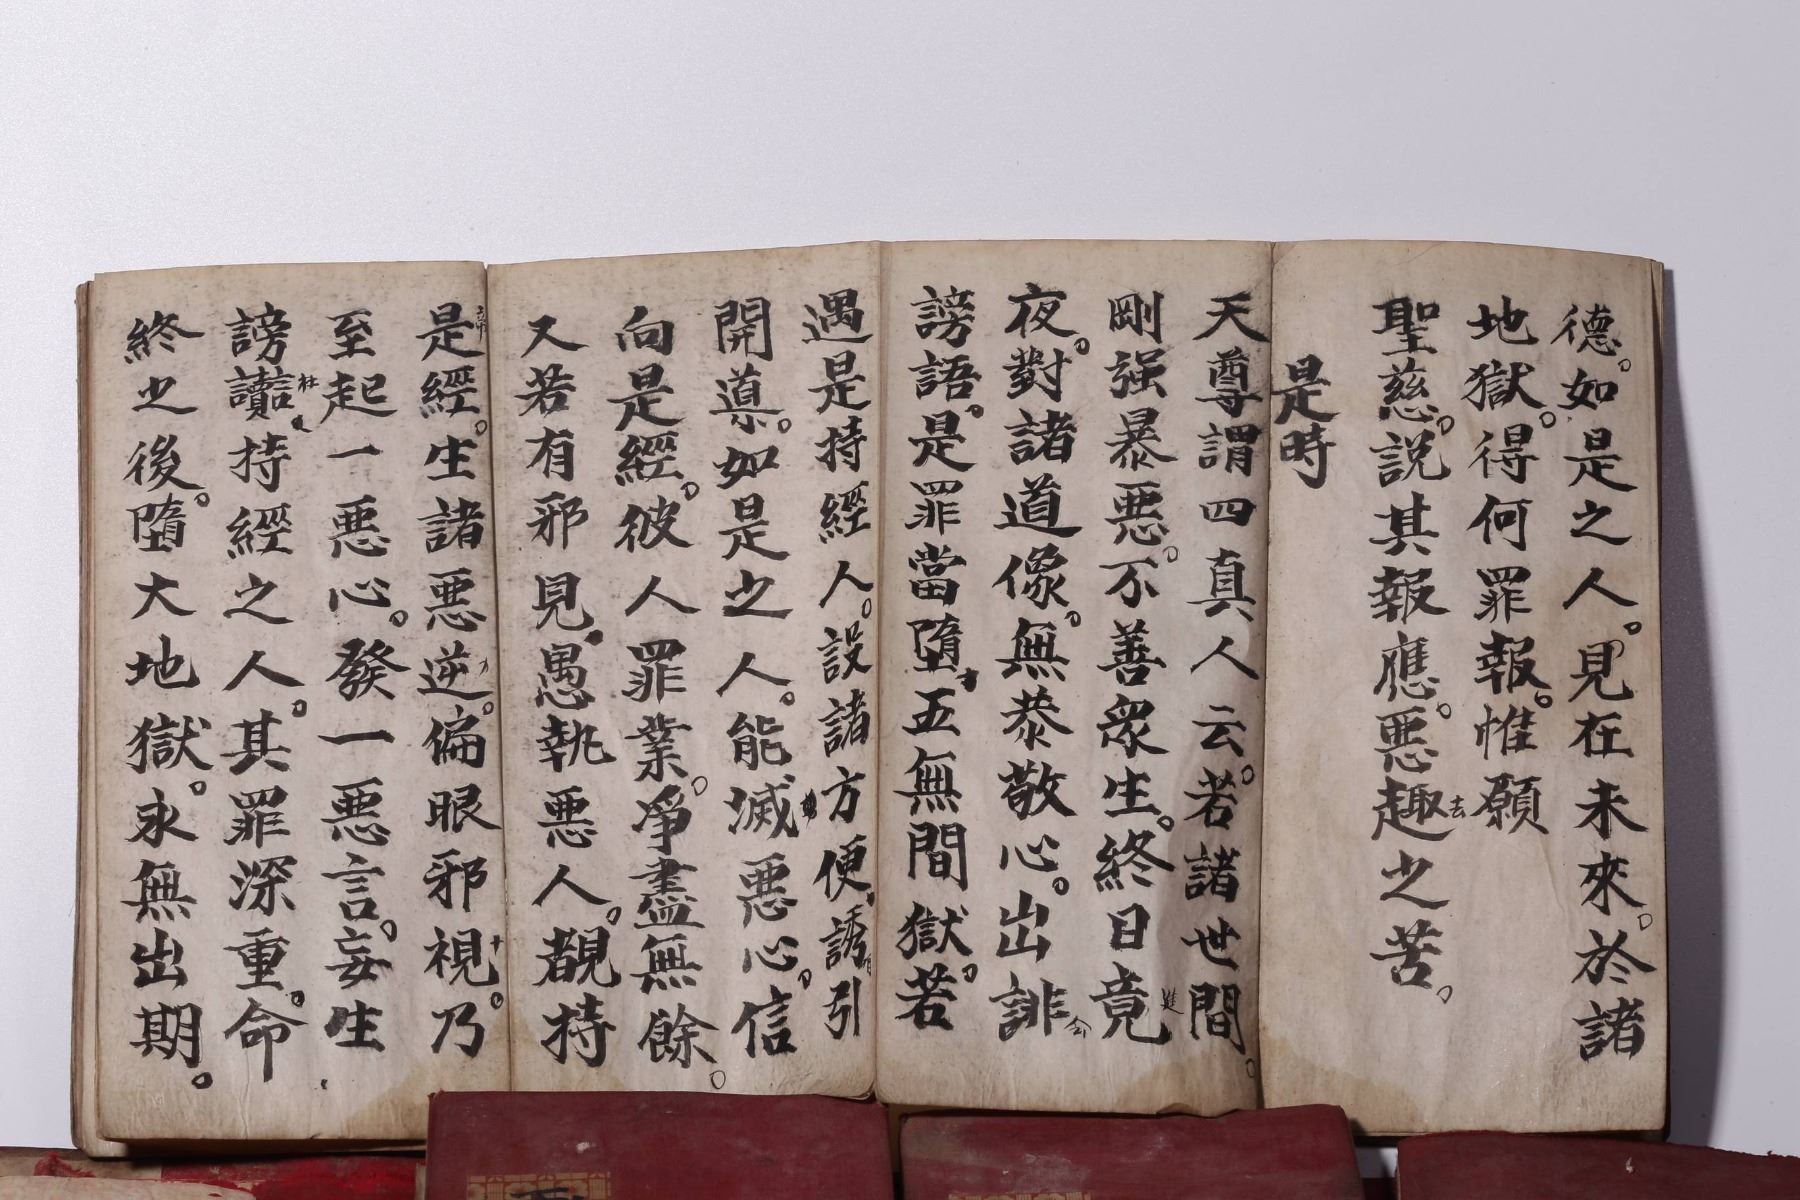 德。如是之人。見在未來。於諸
地獄。得何罪報。惟願
聖慈。説其報應。悪趣去之苦。
是時
天尊謂四真人云。若諸世間。
剛强暴悪。不善衆生。終日竟
夜。對諸道像。無㳟敬心。出誹
謗語。是罪當墮五無間獄。若
遇是持經人。設諸方便誘引
開導。如是之人。能滅悪心。信
向是經。彼人罪業。净盡無餘。
又若有邪見。愚執悪人。覩持
是經。生諸悪逆。偏眼邪視。乃
至起一悪心。發一悪言。妄生
謗讟。持經之人。其罪深重。命
終之後。墮大地獄。永無出期。